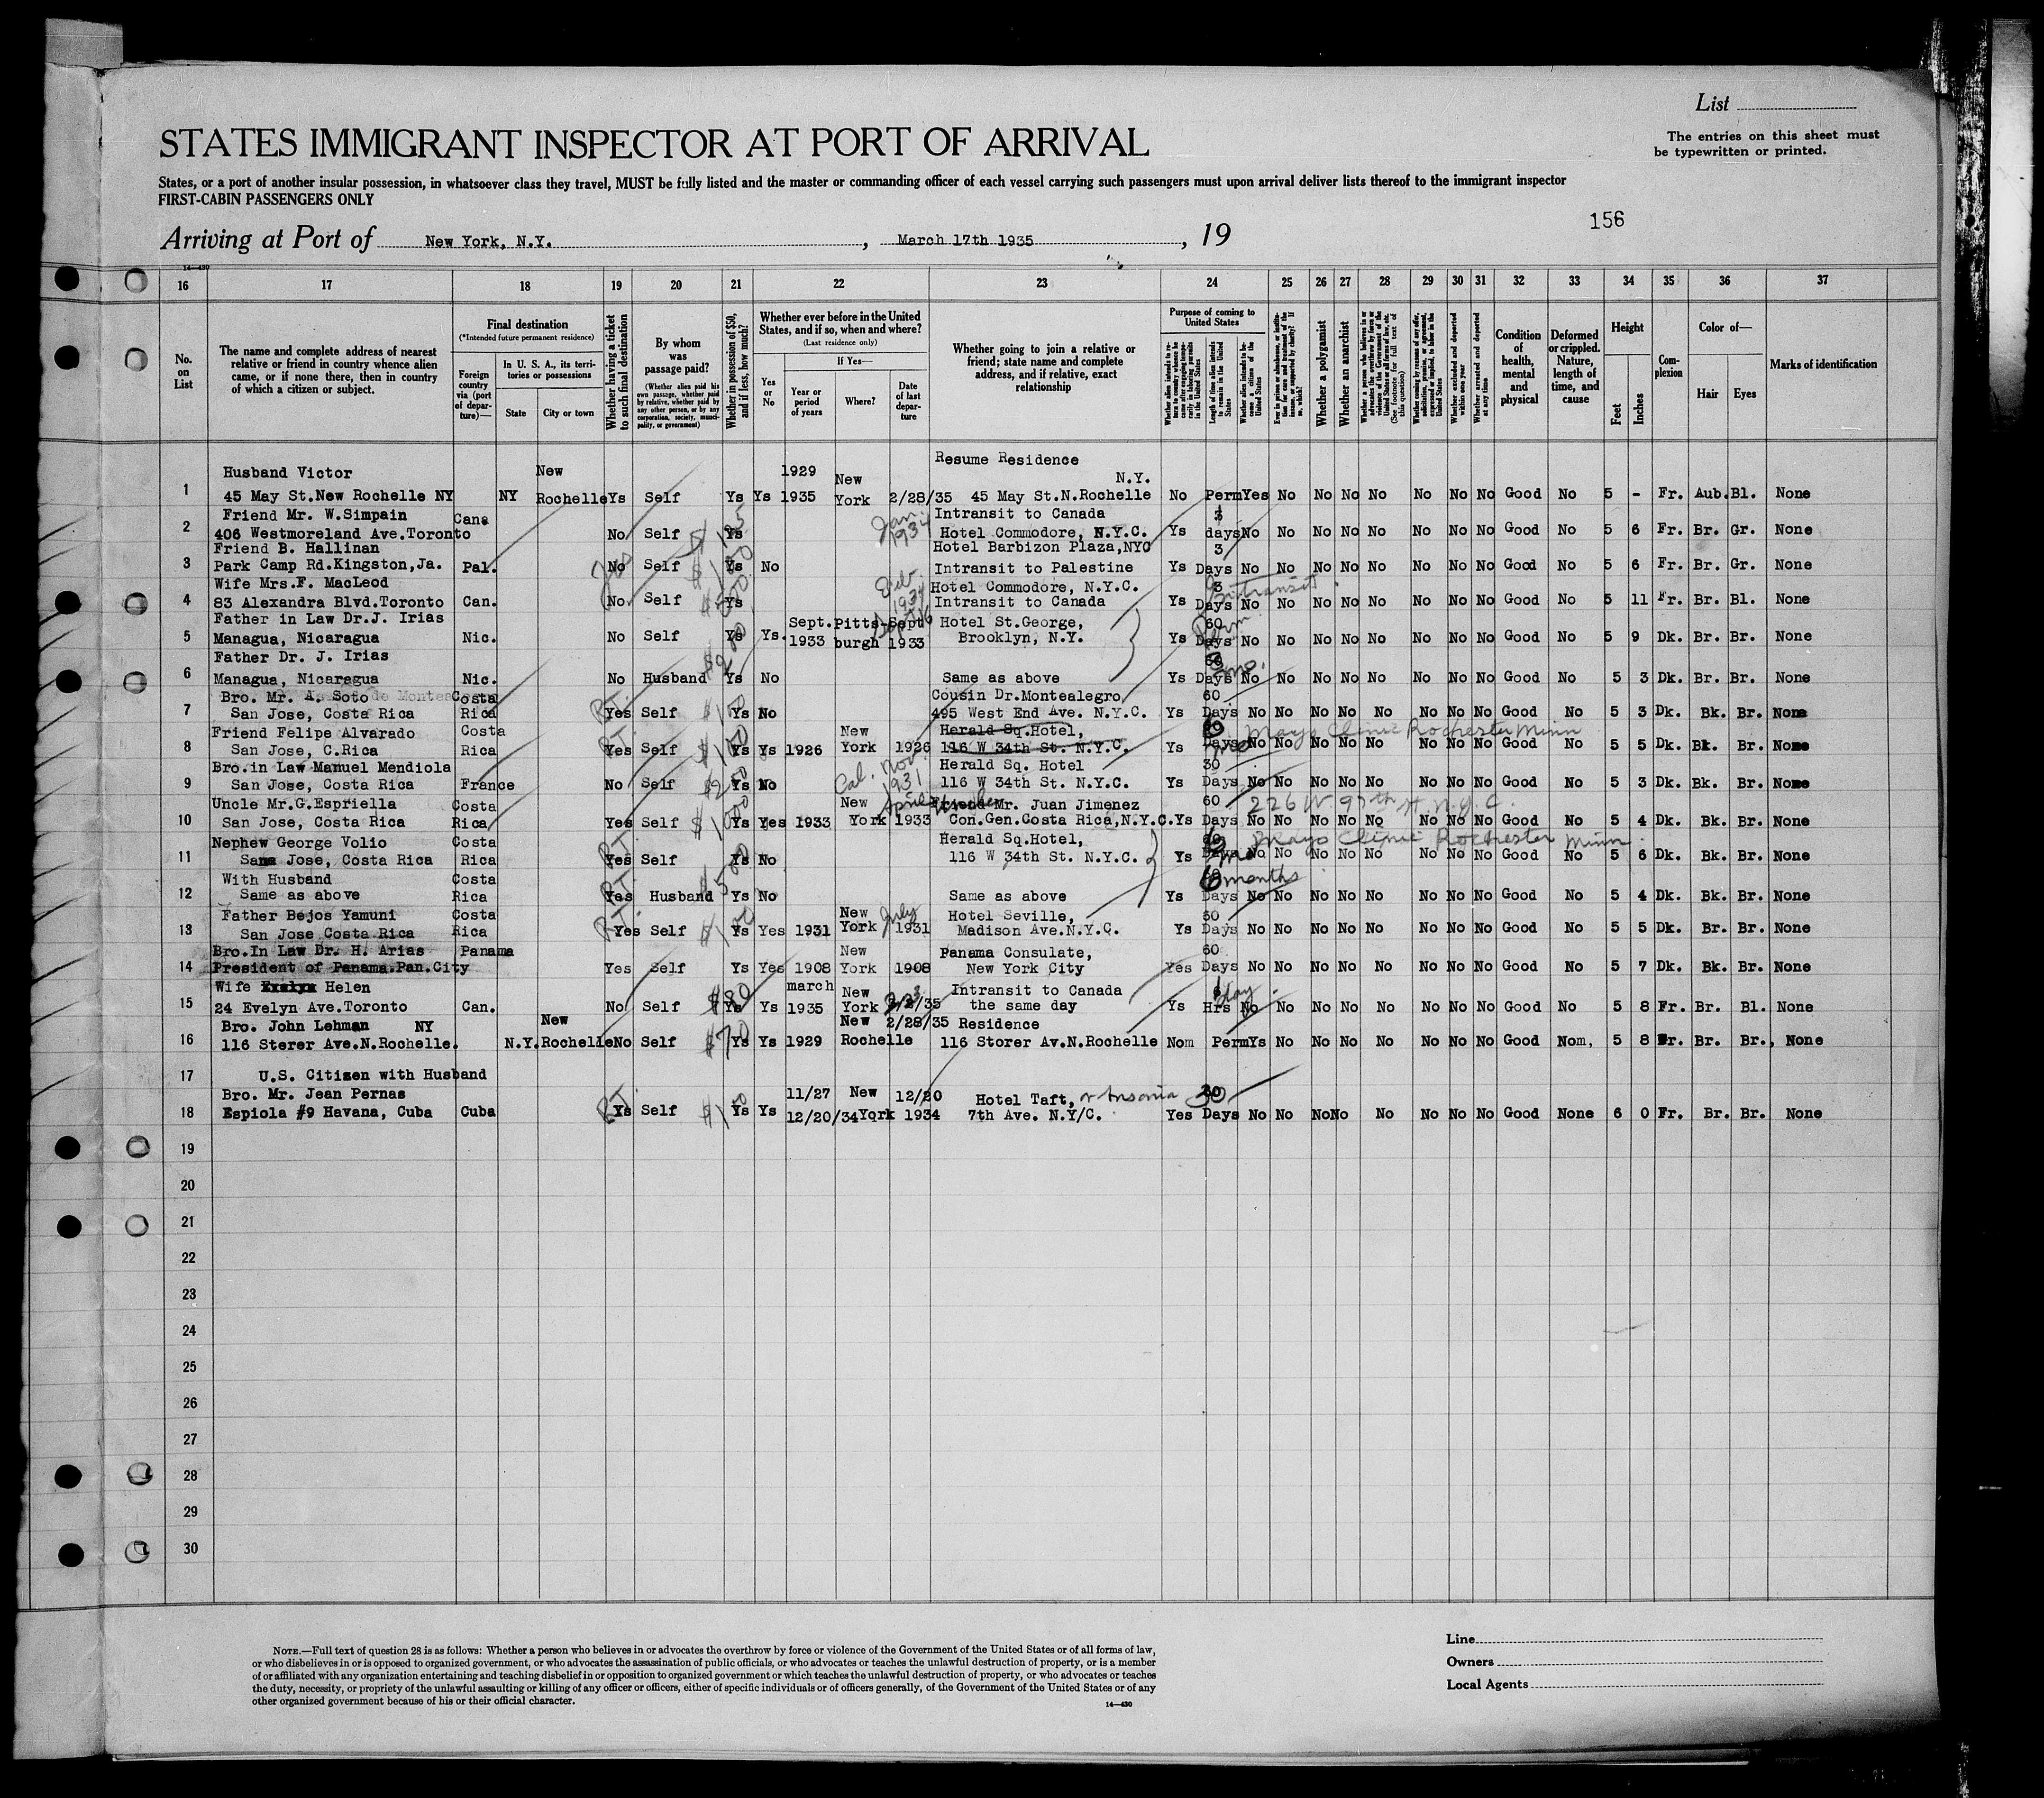 List
The entries on this sheet must
be typewritten or printed.
STATES IMMIGRANT INSPECTOR AT PORT OF ARRIVAL
States, or a port of another insular possession, in whatsoever class they travel, MUST be fully listed and the master or commanding officer of each vessel carrying such passengers must upon arrival deliver lists thereof to the immigrant inspector
FIRST-CABIN PASSENGERS ONLY
156
Arriving at Port of New York, N.Y., March 17th 1935, 19
14-430
16 17 18 19 20 21 22 23 24 25 26 27 28 29 30 31 32 33 34 35 36 37
No. on List
The name and complete address of nearest relative or friend in country whence alien came, or if none there, then in country of which a citizen or subject.
Final destination
(*Intended future permanent residence)
Foreign country via (port of departure)—
In U. S. A., its territories or possessions
State
City or town
Whether having a ticket to such final destination
By whom was passage paid?
(Whether alien paid his own passage, whether paid by relative, whether paid by any other person, or by any corporation, society, municipality, or government)
Whether in possession of $50, and if less, how much?
Whether ever before in the United States, and if so, when and where?
(Last residence only)
Yes or No
If Yes—
Year or period of years
Where?
Date of last departure
Whether going to join a relative or friend; state name and complete address, and if relative, exact relationship
Purpose of coming to United States
Whether a polygamist
Whether an anarchist
Whether excluded and deported within one year
Whether arrested and deported at any time
Condition of health, mental and physical
Deformed or crippled. Nature, length of time, and cause
Height
Feet
Inches
Complexion
Color of—
Hair
Eyes
Marks of identification
Husband Victor New 1929 New Resume Residence N.Y.
1 45 May St.New Rochelle NY NY Rochelle Ys Self Ys Ys 1935 York 2/28/35 45 May St.N.Rochelle No Perm Yes No No No No No No No Good No 5 - Fr. Aub. Bl. None
Friend Mr. W.Simpain Cana Jan. 1934 Intransit to Canada
2 406 Westmoreland Ave.Toronto No Self Ys Hotel Commodore, N.Y.C. Ys days No No No No No No No No Good No 5 6 Fr. Br. Gr. None
Friend B. Hallinan Hotel Barbizon Plaza,NYC 3
3 Park Camp Rd.Kingston,Ja. Pal. No Self Ys No Intransit to Palestine Ys Days No No No No No No No No Good No 5 6 Fr. Br. Gr. None
Wife Mrs.F. MacLeod Hotel Commodore, N.Y.C. 3 Intransit
4 83 Alexandra Blvd.Toronto Can. No Self Ys 1934 Intransit to Canada Ys Days No No No No No No No No Good No 5 11 Fr. Br. Bl. None
Father in Law Dr.J. Irias Sept. Pitts- Sept Hotel St.George, 60
5 Managua, Nicaragua Nic. No Self Ys Ys. 1933 burgh 1933 Brooklyn, N.Y. Ys Days No No No No No No No No Good No 5 9 Dk. Br. Br. None
Father Dr. J. Irias 60
6 Managua, Nicaragua Nic. No Husband Ys No Same as above Ys Days No No No No No No No No Good No 5 3 Dk. Br. Br. None
Bro. Mr. A. Soto Costa Cousin Dr.Montealegro, 60
7 San Jose, Costa Rica Rica Yes Self $100 Ys No 495 West End Ave. N.Y.C. Ys Days No No No No No No No No Good No 5 3 Dk. Bk. Br. None
Friend Felipe Alvarado Costa New Herald Sq.Hotel, Mayo Clinic Rochester Minn
8 San Jose, C.Rica Rica Yes Self $100 Ys Ys 1926 York 1926 116 W 34th St. N.Y.C. Ys Days No No No No No No No No Good No 5 5 Dk. Bk. Br. None
Bro.in Law Manuel Mendiola Cal. Nov. 1931 Herald Sq. Hotel 30
9 San Jose, Costa Rica France No Self Ys No 116 W 34th St. N.Y.C. Ys Days No No No No No No No No Good No 5 3 Dk. Bk. Br. None
Uncle Mr.G.Espriella Costa New April Friend Mr. Juan Jimenez 60 226 W 97th St N.Y.C.
10 San Jose, Costa Rica Rica Yes Self Ys Yes 1933 York 1933 Con.Gen.Costa Rica,N.Y.C. Ys Days No No No No No No No No Good No 5 4 Dk. Bk. Br. None
Nephew George Volio Costa Herald Sq.Hotel, Mayo Clinic Rochester Minn
11 San Jose, Costa Rica Rica Yes Self Ys No 116 W 34th St. N.Y.C. Ys Days No No No No No No No No Good No 5 6 Dk. Bk. Br. None
With Husband Costa 6 months
12 Same as above Rica Yes Husband $500 Ys No Same as above Ys Days No No No No No No No No Good No 5 4 Dk. Bk. Br. None
Father Bejos Yamuni Costa New July Hotel Seville,
13 San Jose Costa Rica Rica Yes Self $100 Ys Yes 1931 York 1931 Madison Ave.N.Y.C. Ys Days No No No No No No No No Good No 5 5 Dk. Br. Br. None
Bro.In Law Dr. H. Arias Panama New Panama Consulate, 60
14 President of Panama.Pan.City Yes Self Ys Yes 1908 York 1908 New York City Yes Days No No No No No No No No Good No 5 7 Dk. Bk. Br. None
Wife Helen march New Intransit to Canada day
15 24 Evelyn Ave.Toronto Can. No Self $80 Ys Ys 1935 York 2/2/35 the same day Ys Hrs No No No No No No No No Good No 5 8 Fr. Br. Bl. None
Bro. John Lehman NY New New 2/28/35 Residence
16 116 Sterer Ave.N.Rochelle. N.Y. Rochelle No Self $70 Ys Ys 1929 Rochelle 116 Storer Av.N.Rochelle Nom Perm Ys No No No No No No No Good Nom, 5 8 Fr. Br. Br., None
17 U.S. Citizen with Husband
Bro. Mr. Jean Pernas 11/27 New 12/20 Hotel Taft, or Ansonia 30
18 Espiola #9 Havana, Cuba Cuba Ys Self Ys Ys 12/20/34 York 1934 7th Ave. N.Y/C. Yes Days No No No No No No No No Good None 6 0 Fr. Br. Br. None
19
20
21
22
23
24
25
26
27
28
29
30
NOTE.—Full text of question 28 is as follows: Whether a person who believes in or advocates the overthrow by force or violence of the Government of the United States or of all forms of law,
or who disbelieves in or is opposed to organized government, or who advocates the assassination of public officials, or who advocates or teaches the unlawful destruction of property, or is a member
of or affiliated with any organization entertaining and teaching disbelief in or opposition to organized government or which teaches the unlawful destruction of property, or who advocates or teaches
the duty, necessity, or propriety of the unlawful assaulting or killing of any officer or officers, either of specific individuals or of officers generally, of the Government of the United States or of any
other organized government because of his or their official character.
14-430
Line
Owners
Local Agents